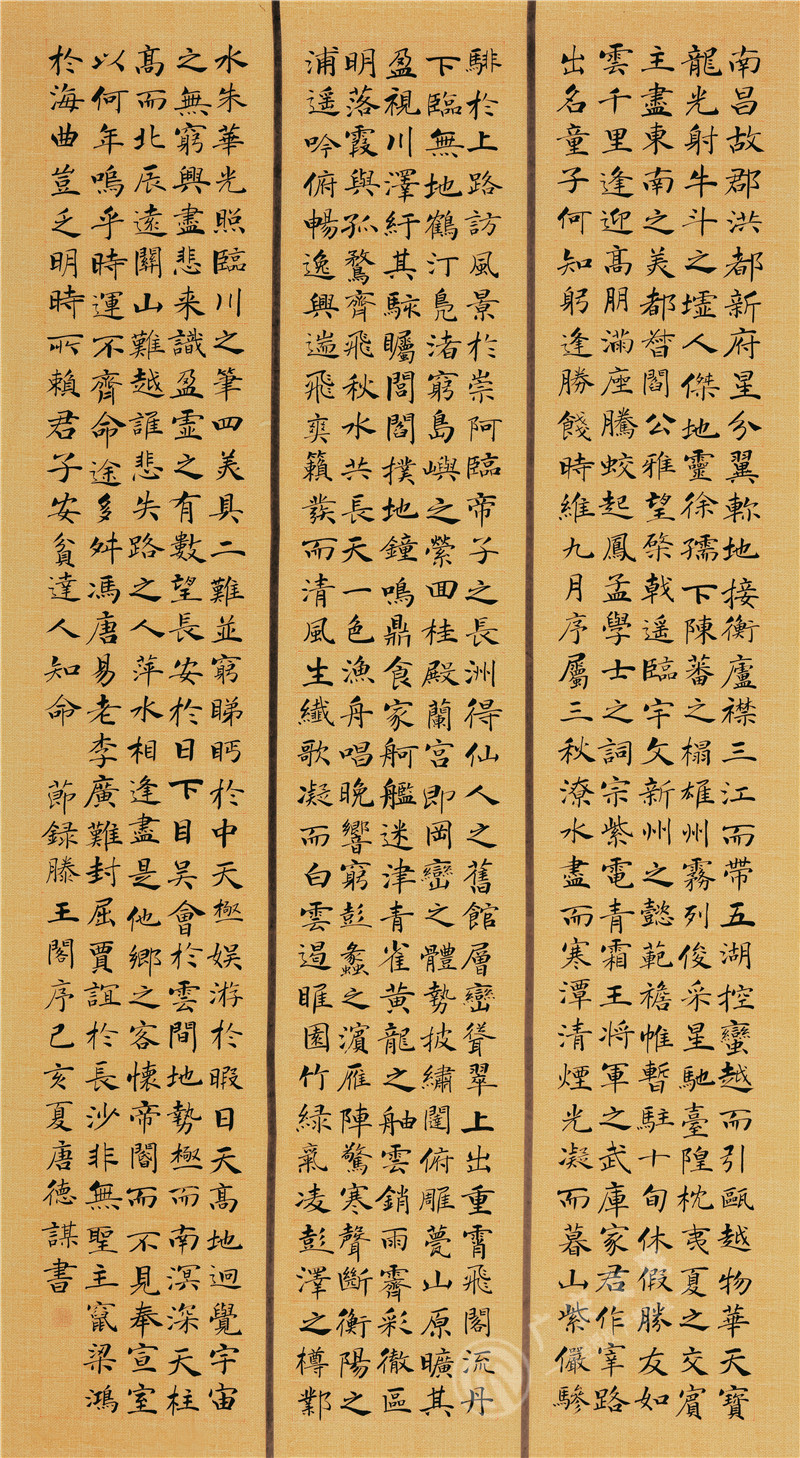 南昌故郡洪都新府星分翼軫地接衡廬襟三江而帶五湖控蠻越而引甌越物華天寶
龍光射牛斗之墟人傑地靈徐孺下陳蕃之榻雄州霧列俊采星馳臺隍枕夷夏之交賓
主盡東南之美都督閻公雅望棨戟遥臨宇文新州之懿範襜帷暫駐十旬休假勝友如
雲千里逢迎高朋滿座騰蛟起鳳孟學士之詞宗紫電青霜王將軍之武庫家君作宰路
出名童子何知躬逢勝餞時維九月序屬三秋潦水盡而寒潭清煙光凝而暮山紫儼驂
騑於上路訪風景於崇阿臨帝子之長洲得仙人之舊館層巒聳翠上出重霄飛閣流丹
下臨無地鶴汀鳧渚窮島嶼之縈回桂殿蘭宮即岡巒之體勢披繡闥俯雕甍山原曠其
盈視川澤紆其駭矚閭閻撲地鐘鳴鼎食家舸艦迷津青雀黃龍之舳雲銷雨霽彩徹區
明落霞與孤鶩齊飛秋水共長天一色漁舟唱晚響窮彭蠡之濱雁陣驚寒聲斷衡陽之
浦遥吟俯暢逸興遄飛爽籟發而清風生纖歌凝而白雲遏睢園竹緑氣凌彭澤之樽鄴
水朱華光照臨川之筆四美具二難並窮睇眄於中天極娛游於暇日天高地迥覺宇宙
之無窮興盡悲来識盈虛之有數望長安於日下目吳會於雲間地勢極而南溟深天柱
高而北辰遠關山難越誰悲失路之人萍水相逢盡是他鄉之客懷帝閽而不見奉宣室
以何年嗚乎時運不齊命途多舛馮唐易老李廣難封屈賈誼於長沙非無聖主竄梁鴻
於海曲豈乏明時所賴君子安貧達人知命 節録滕王閣序己亥夏唐德謀書